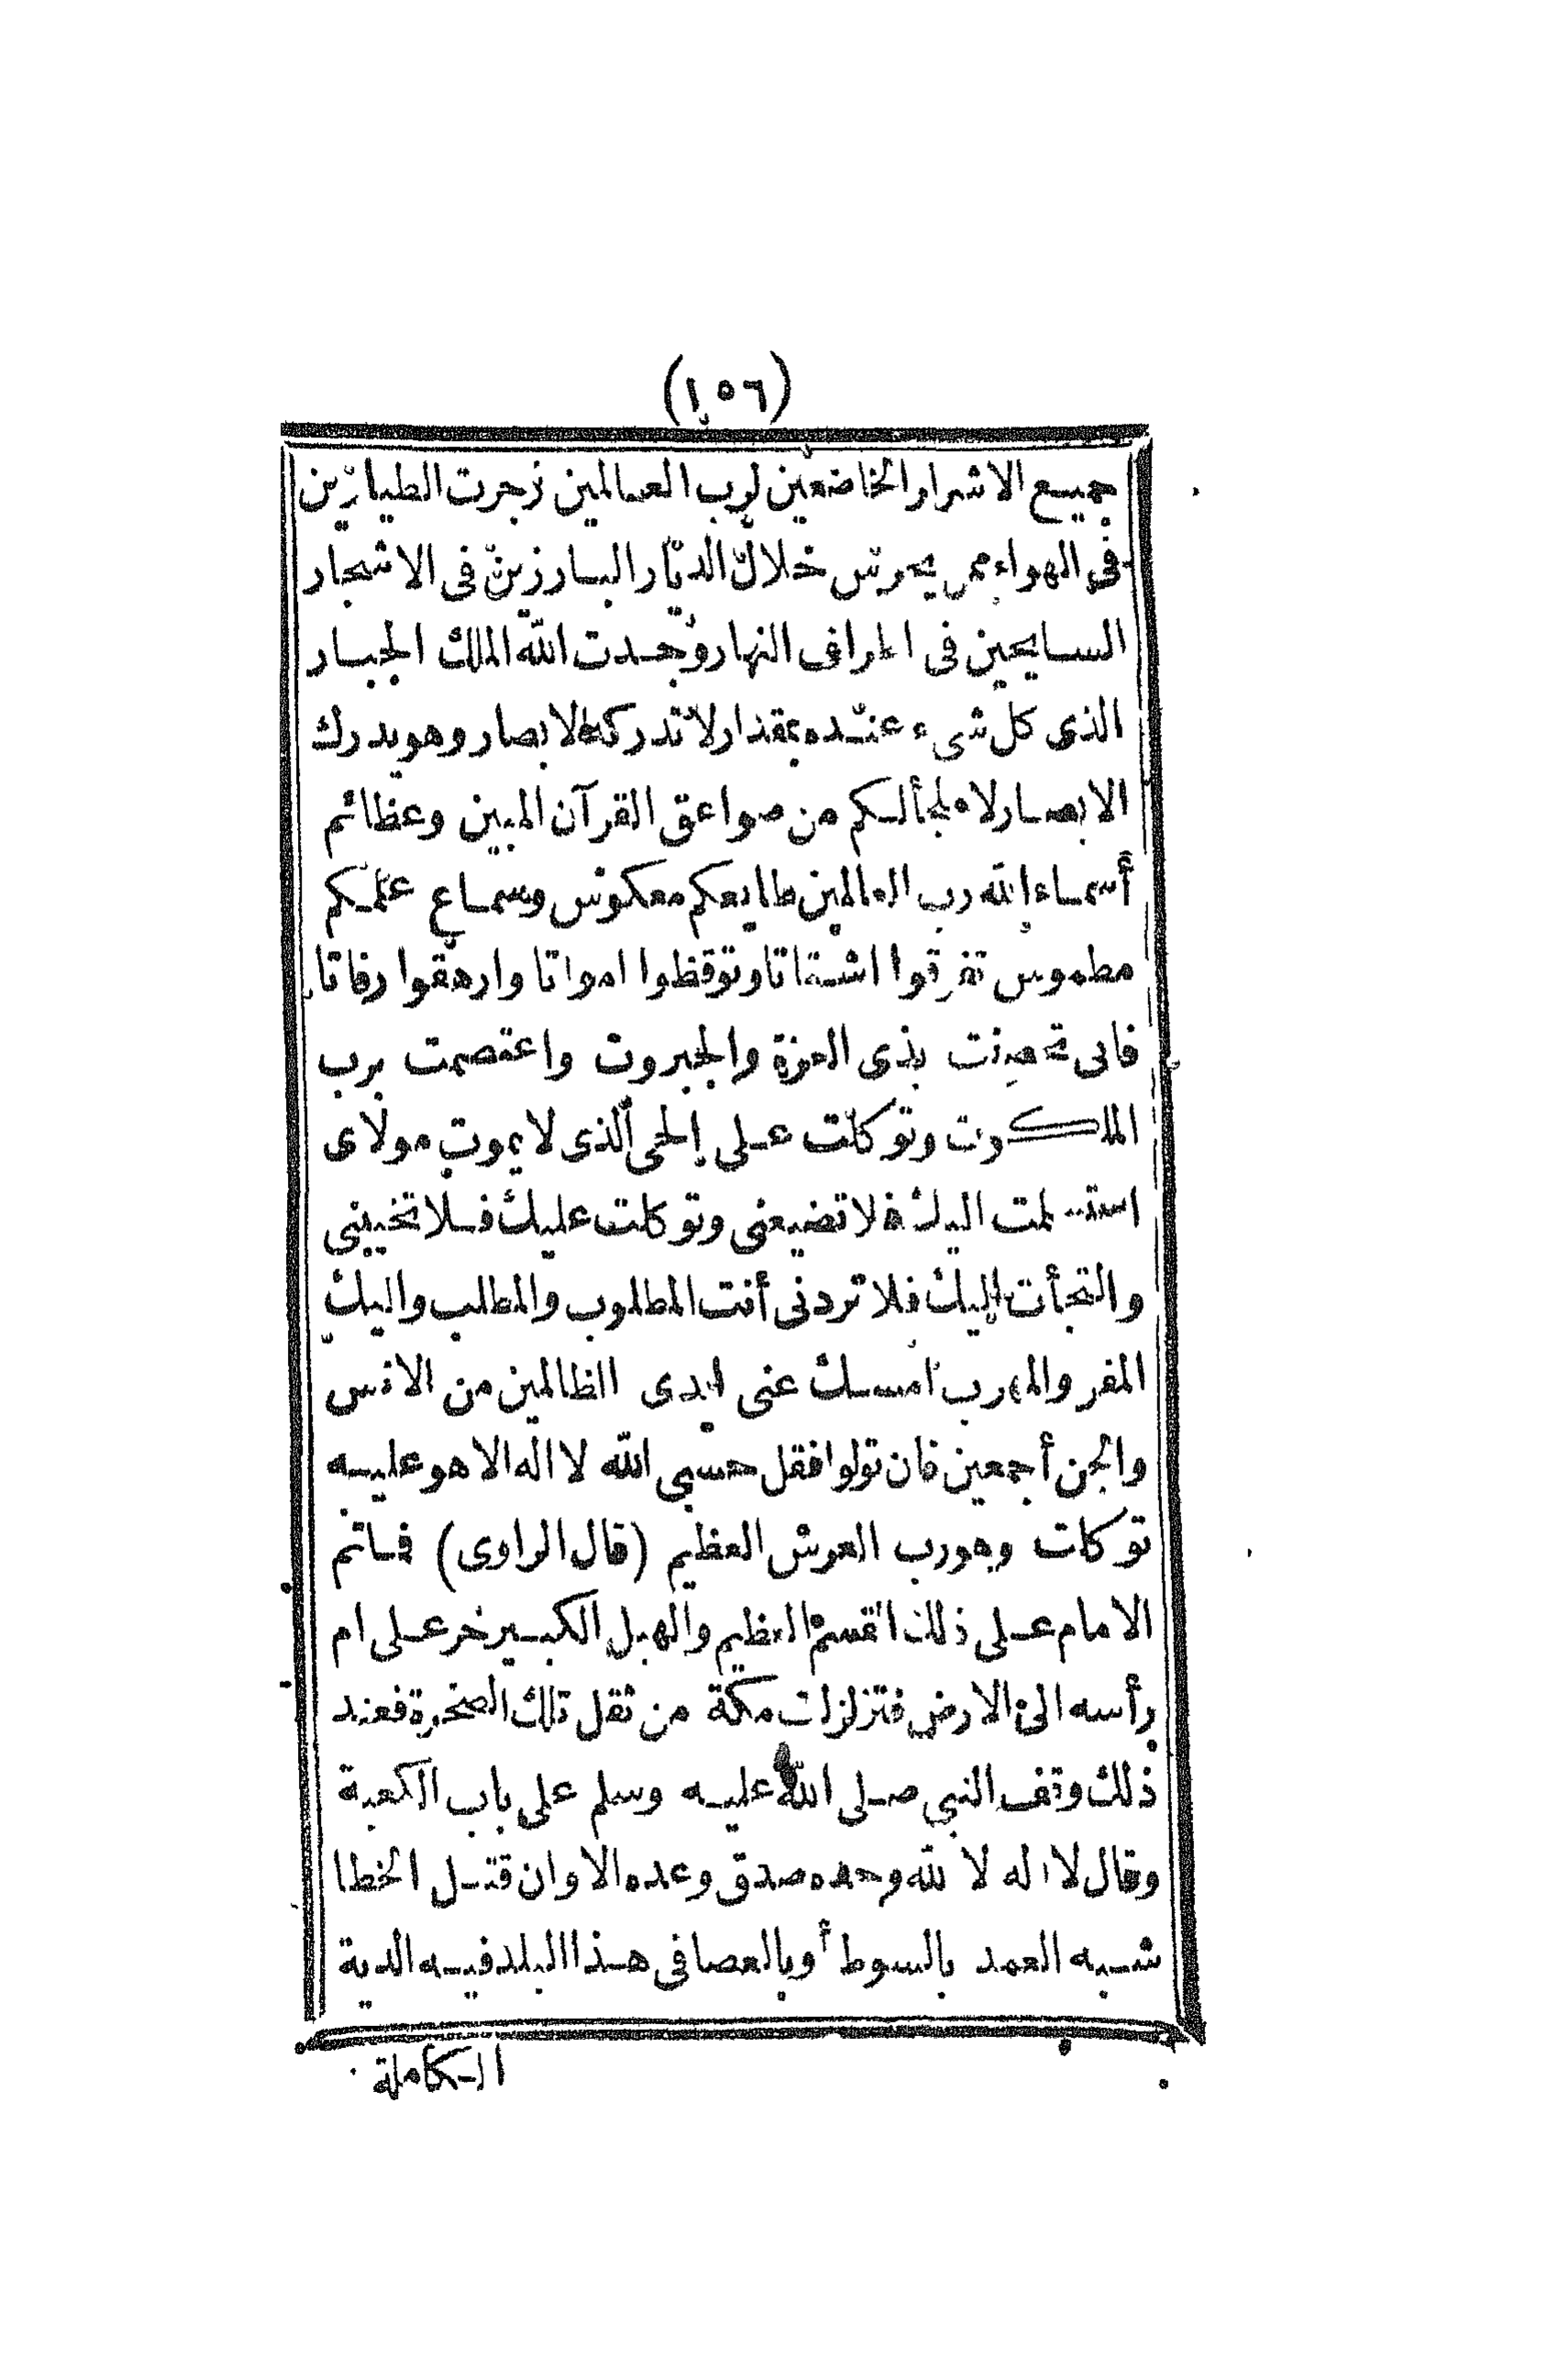 (١٥٦)
جميع الاشرار الخاضعين لرب العالمين زجرت الطيارين
فى الهواء ممن يحرس خلال الديار البارزين فى الاشجار
السايحين فى اطراف النهار وجدت الله الملك الجبار
الذى كل شىء عنده بمقدار لا تدركه الابصار وهو يدرك
الابصار لا ملجأ لكم من صواعق القرآن المبين وعظائم
أسماء الله رب العالمين طابعكم معكوس وسماع علمكم
مطموس تفرقوا اشتاتا وتوقظوا امواتا وارهقوا رفاتا
فانى تحصنت بذى العزة والجبروت واعتصمت برب
الملكوت وتوكلت على الحى الذى لا يموت مولاى
استسلمت اليك فلا تضيعنى وتوكلت عليك فلا تخيبنى
والتجأت اليك فلا تردنى أنت المطلوب والمطلب واليك
المفر والمهرب امسك عنى ايدى الظالمين من الانس
والجن أجمعين فان تولوا فقل حسبى الله لا اله الا هو عليه
توكلت وهو رب العرش العظيم (قال الراوى) فاتم
الامام على ذلك القسم العظيم والهبل الكبير خر على ام
رأسه الى الارض فتزلزلت مكة من ثقل تلك الصخرة فعند
ذلك وقف النبي صلى الله عليه وسلم على باب الكعبة
وقال لا اله لا لله وحده صدق وعده الا وان قتل الخطا
شبه العمد بالسوط أو بالعصا فى هذا البلد فيه الدية
الكاملة